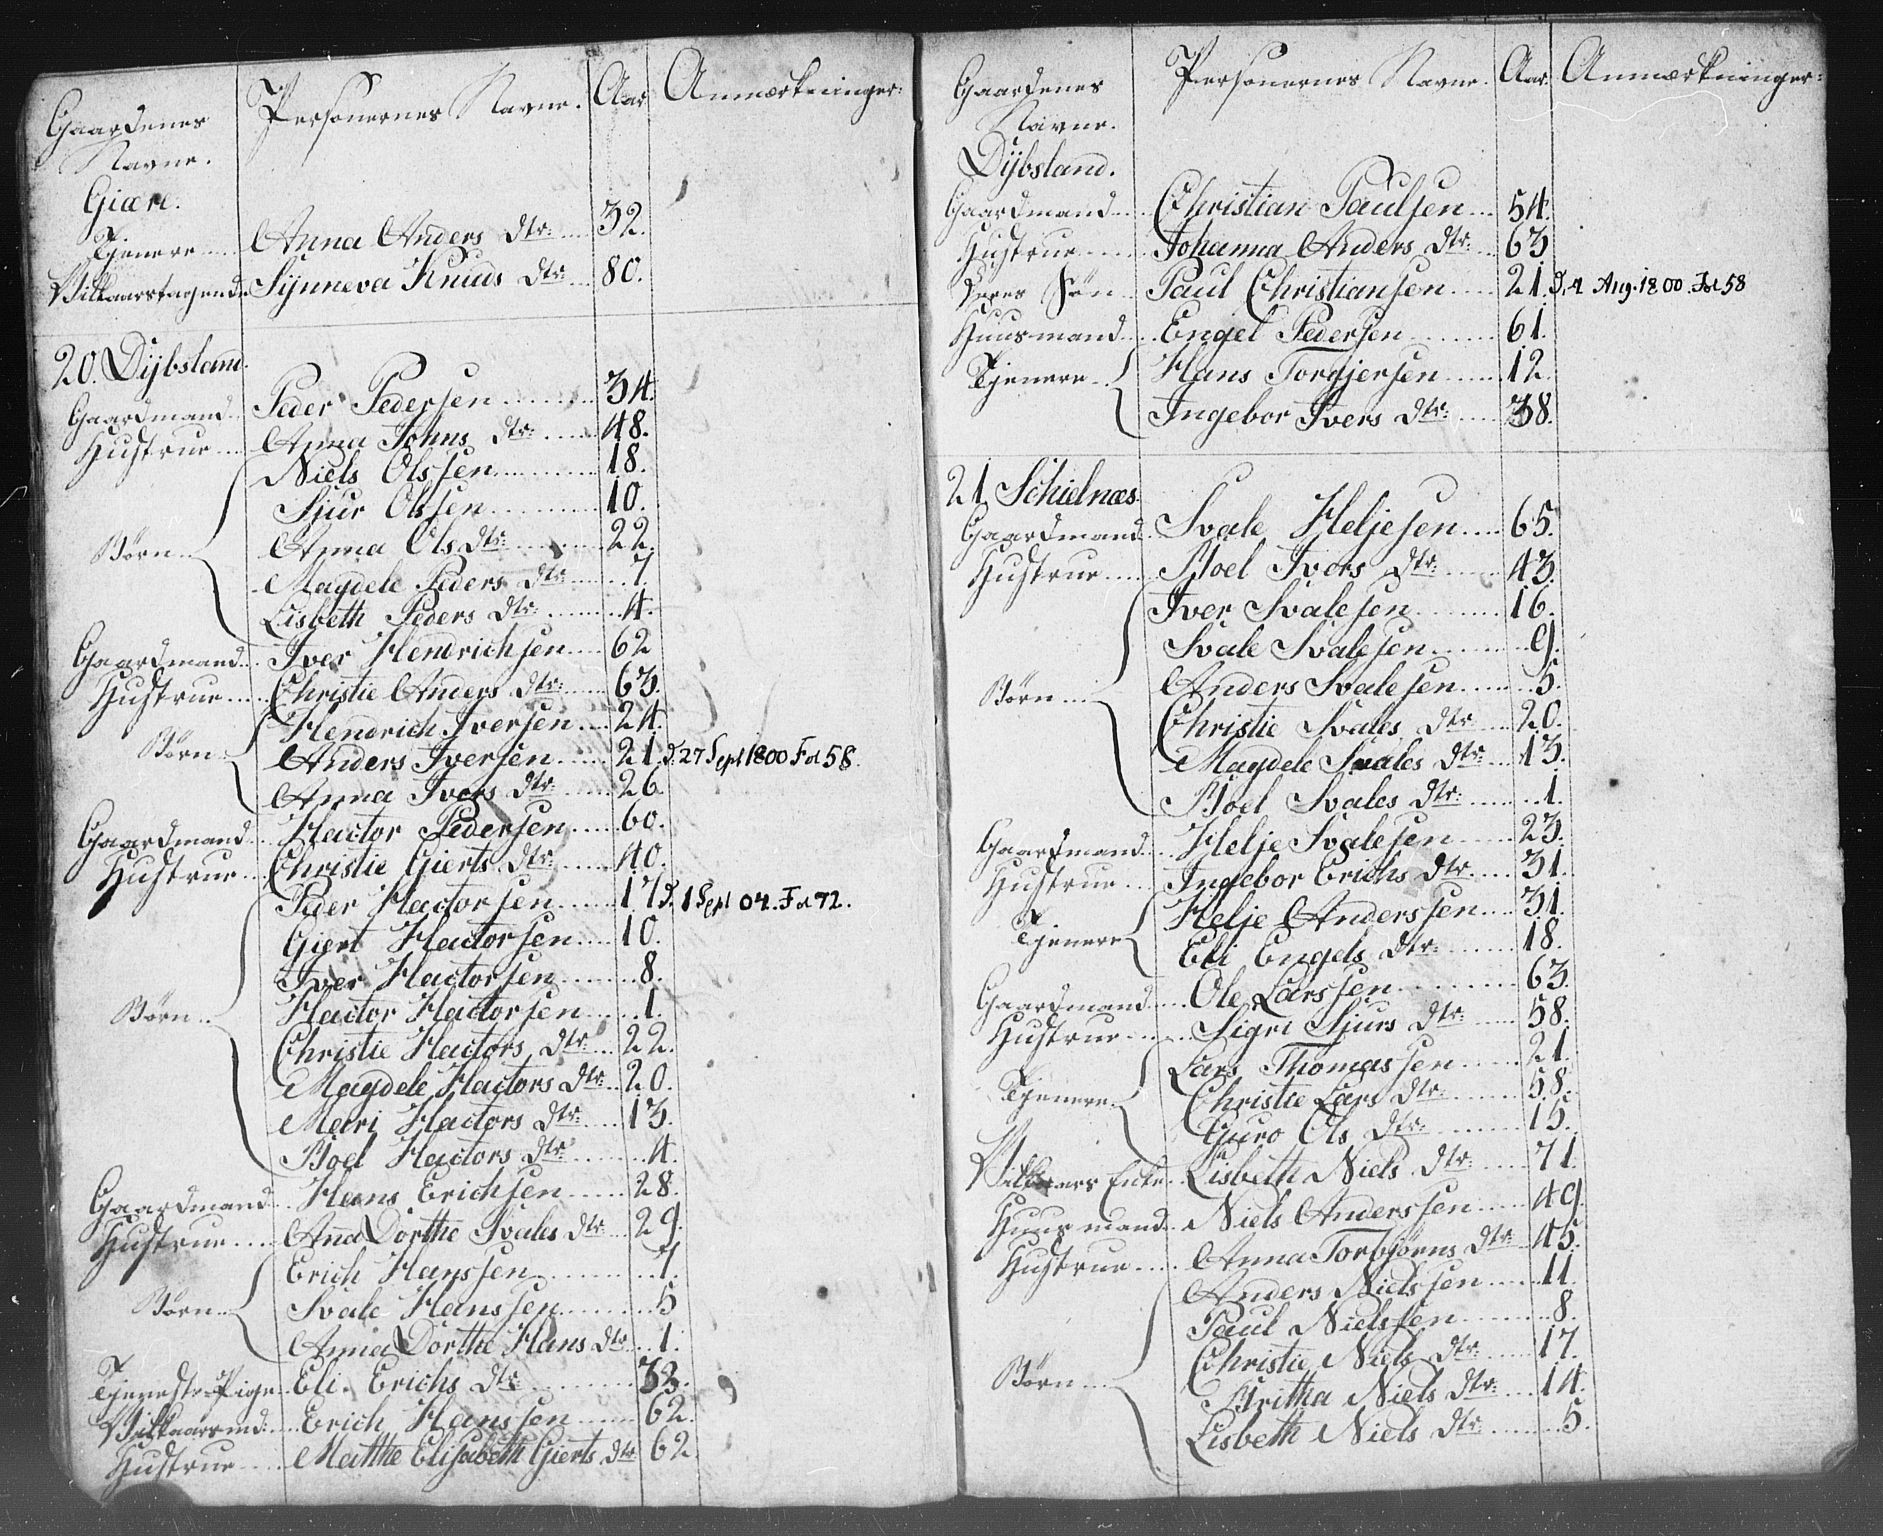 Gaardenes Navne. Personernes Navne. Aar Anmærkninger:
Giære.
Tjenere Anna Anders Dtr: 32.
Vilkaarstagende Synneva Knuds Dtr: 80.
20. Dybsland.
Gaardmand Peder Pedersen 34.
Hustrue Anna Johns Dtr: 48.
Niels Olssen 18.
Sjur Olssen 10.
Børn Anna Ols Dtr: 22.
Magdele Peders Dtr: 7.
Lisbeth Peders Dtr: 4.
Gaardmand Iver Hendrichsen 62
Hustrue Christie Anders Dtr: 63.
Hendrich Iversen 24.
Børn Anders Iversen 21. d. 27 Sept 1800 Fol 58.
Anna Ivers Dtr: 26
Gaardmand Hactor Pedersen 60.
Hustrue Christie Gierts Dtr: 40.
Peder Hactorsen 17 d. 1 Sept 04. Fol 72.
Giert Hactorsen 10.
Iver Hactorsen 8.
Børn Hactor Hactorsen 1.
Christie Hactors Dtr: 22.
Magdele Hactors Dtr: 20.
Mari Hactors Dtr: 13.
Boel Hactors Dtr: 4.
Gaardmand Hans Erichsen 28.
Hustrue Ana Dorthe Svales Dtr 29.
Erich Hanssen 7.
Børn Svale Hanssen 5
Anna Dorthe Hans Dtr 1.
Tjeneste Pige Eli Erichs Dtr 33.
Vilkaarsmd: Erich Hanssen 62.
Hustrue Matthe Elisabeth Gierts Dtr 62.
Gaardenes Navne. Personernes Navne. Aar. Anmærkninger:
Dybsland.
Gaardmand Christian Paulsen 54.
Hustrue Johanna Anders Dtr: 63
Deres Søn Paul Christiansen 21. D. 4 Aug. 1800. Fol 58
Huusmand Engel Pedersen 61.
Tjenere Hans Torgjersen 12.
Ingebor Ivers Dtr: 38.
21. Schielnæs.
Gaardmand Svale Heljesen 65.
Hustrue Boel Ivers Dtr: 43.
Iver Svalesen 16.
Svale Svalesen 9.
Anders Svalesen 5.
Børn Christie Svales Dtr 20.
Magdele Svales Dtr: 13.
Boel Svales Dtr: 1.
Gaardmand Helje Svalesen 23.
Hustrue Ingebor Erichs Dtr. 31.
Tjenere Helje Anderssen 31.
Eli Engels Dtr: 18.
Gaardmand Ole Larssen 63.
Hustrue Sigri Sjurs Dtr: 58.
Lars Thomassen 21.
Tjenere Christie Lars Dtr: 58.
Guro Ols Dtr: 15.
Vilkaars Enke Lisbeth Niels Dtr: 71.
Huusmand Niels Anderssen 49.
Hustrue Anna Torbjørns Dtr: 45.
Anders Nielssen 11.
Paul Nielssen 8.
Christie Niels Dtr: 17.
Børn Britha Niels Dtr: 14.
Lisbeth Niels Dtr: 5.